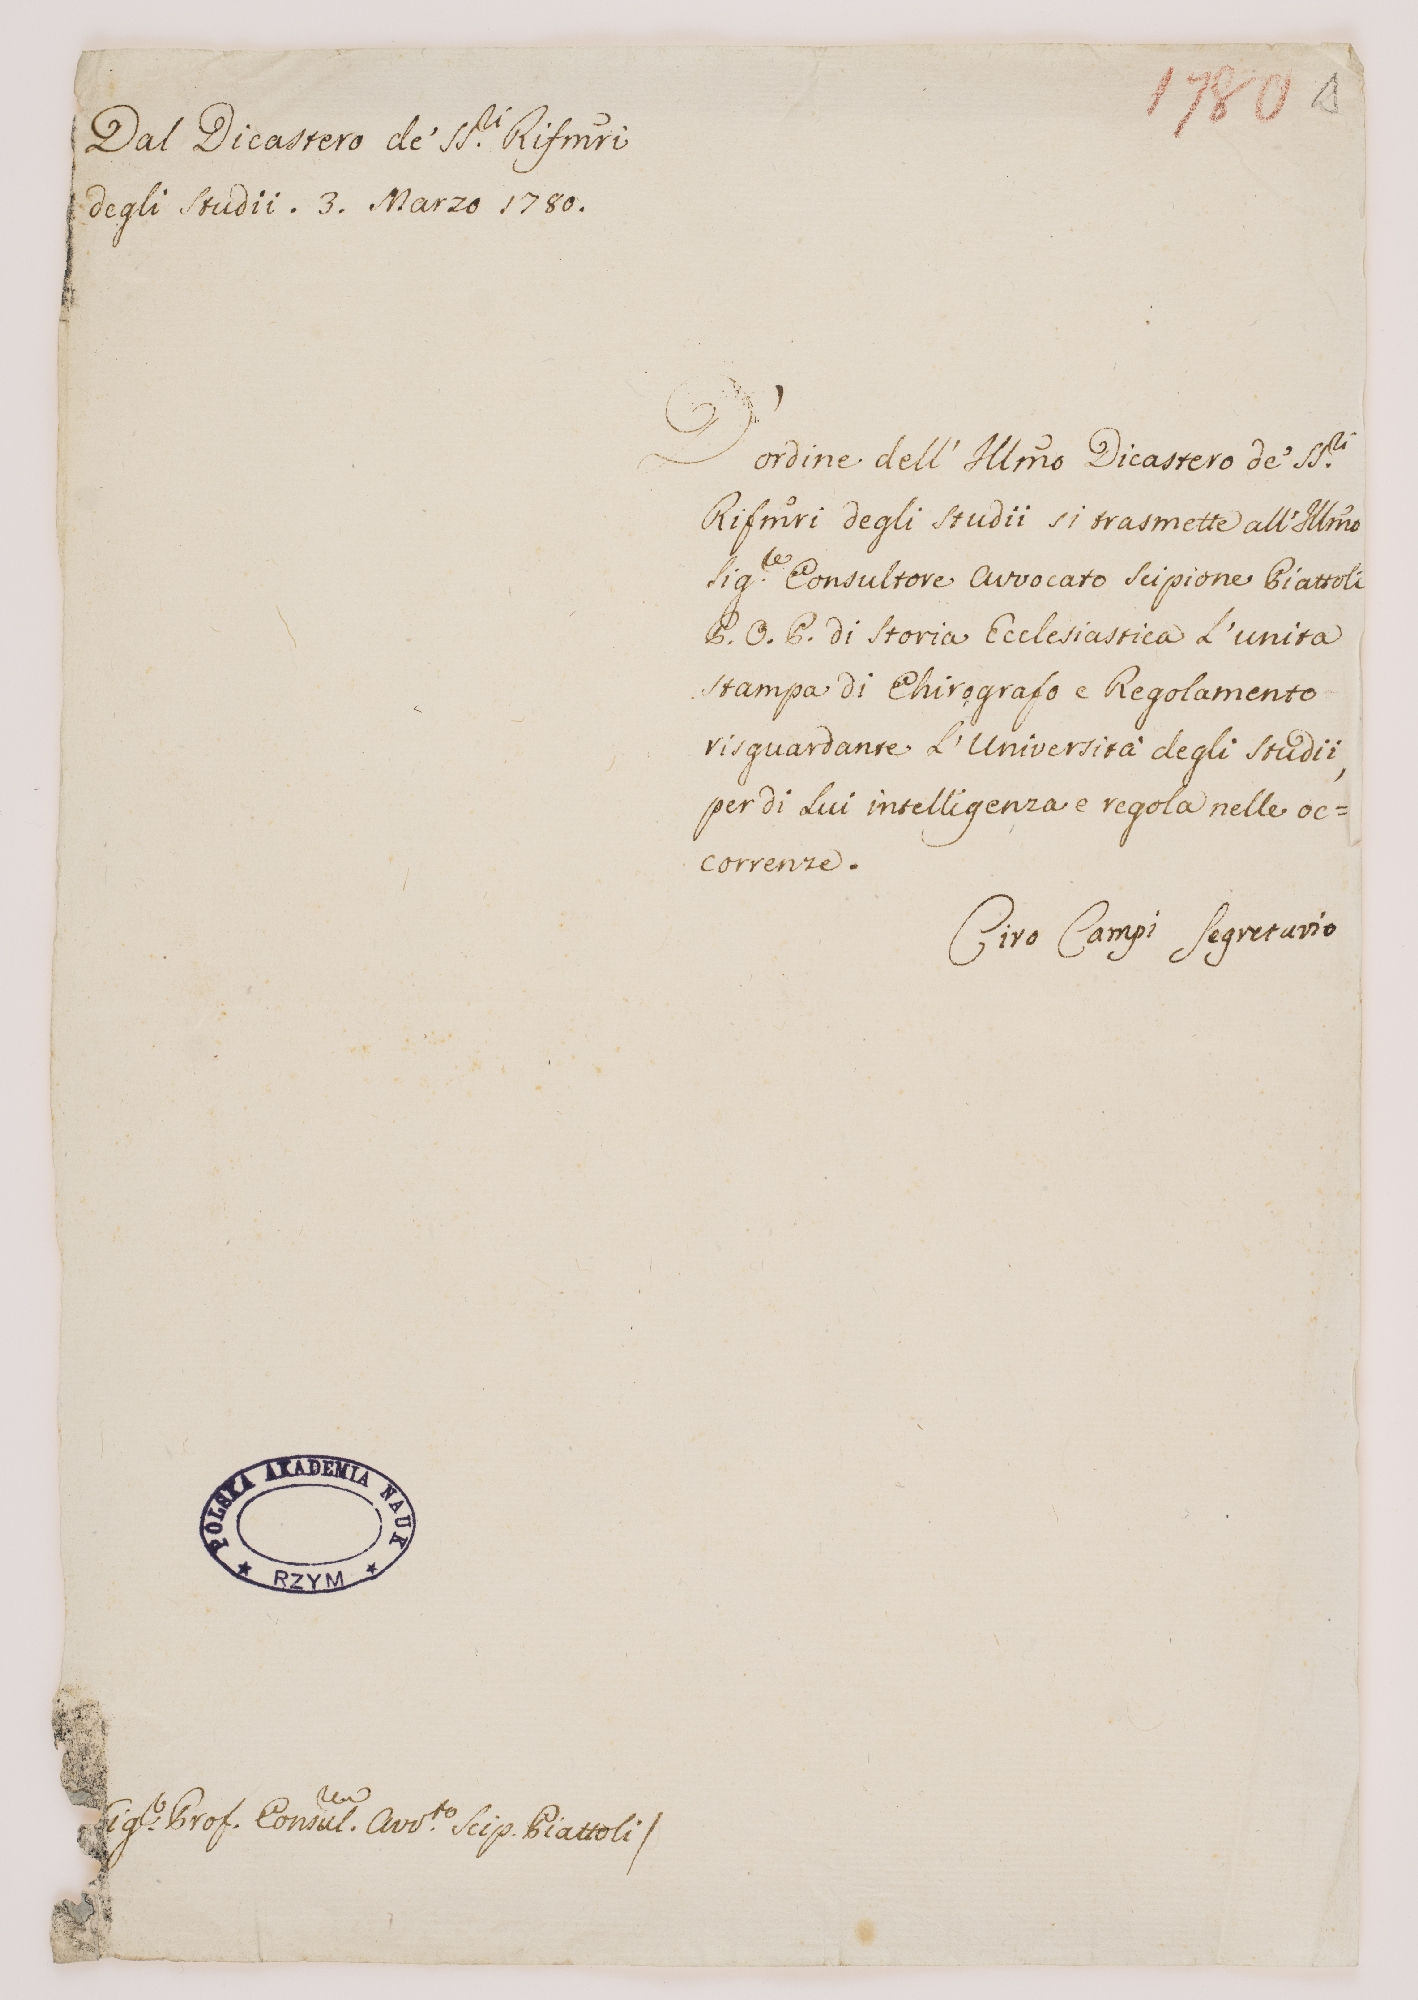 1780
Dal Dicastero de' SS.ri Rifmri
degli Studii. 3. Marzo 1780.
D'
ordine dell' Illmo Dicastero de' SS.ri
Rifmri degli Studii si trasmette all' Illmo
Sig.re Consultore Avvocato Scipione Piattoli
P. O. P. di Storia Ecclesiastica L'unita
stampa di Chirografo e Regolamento
risguardante L'Università degli Studii,
per di Lui intelligenza e regola nelle oc=
correnze.
Ciro Campi Segretario
POLSKA AKADEMIA NAUK
RZYM
Sig.re Prof. Consul. Avv.to Scip. Piattoli/